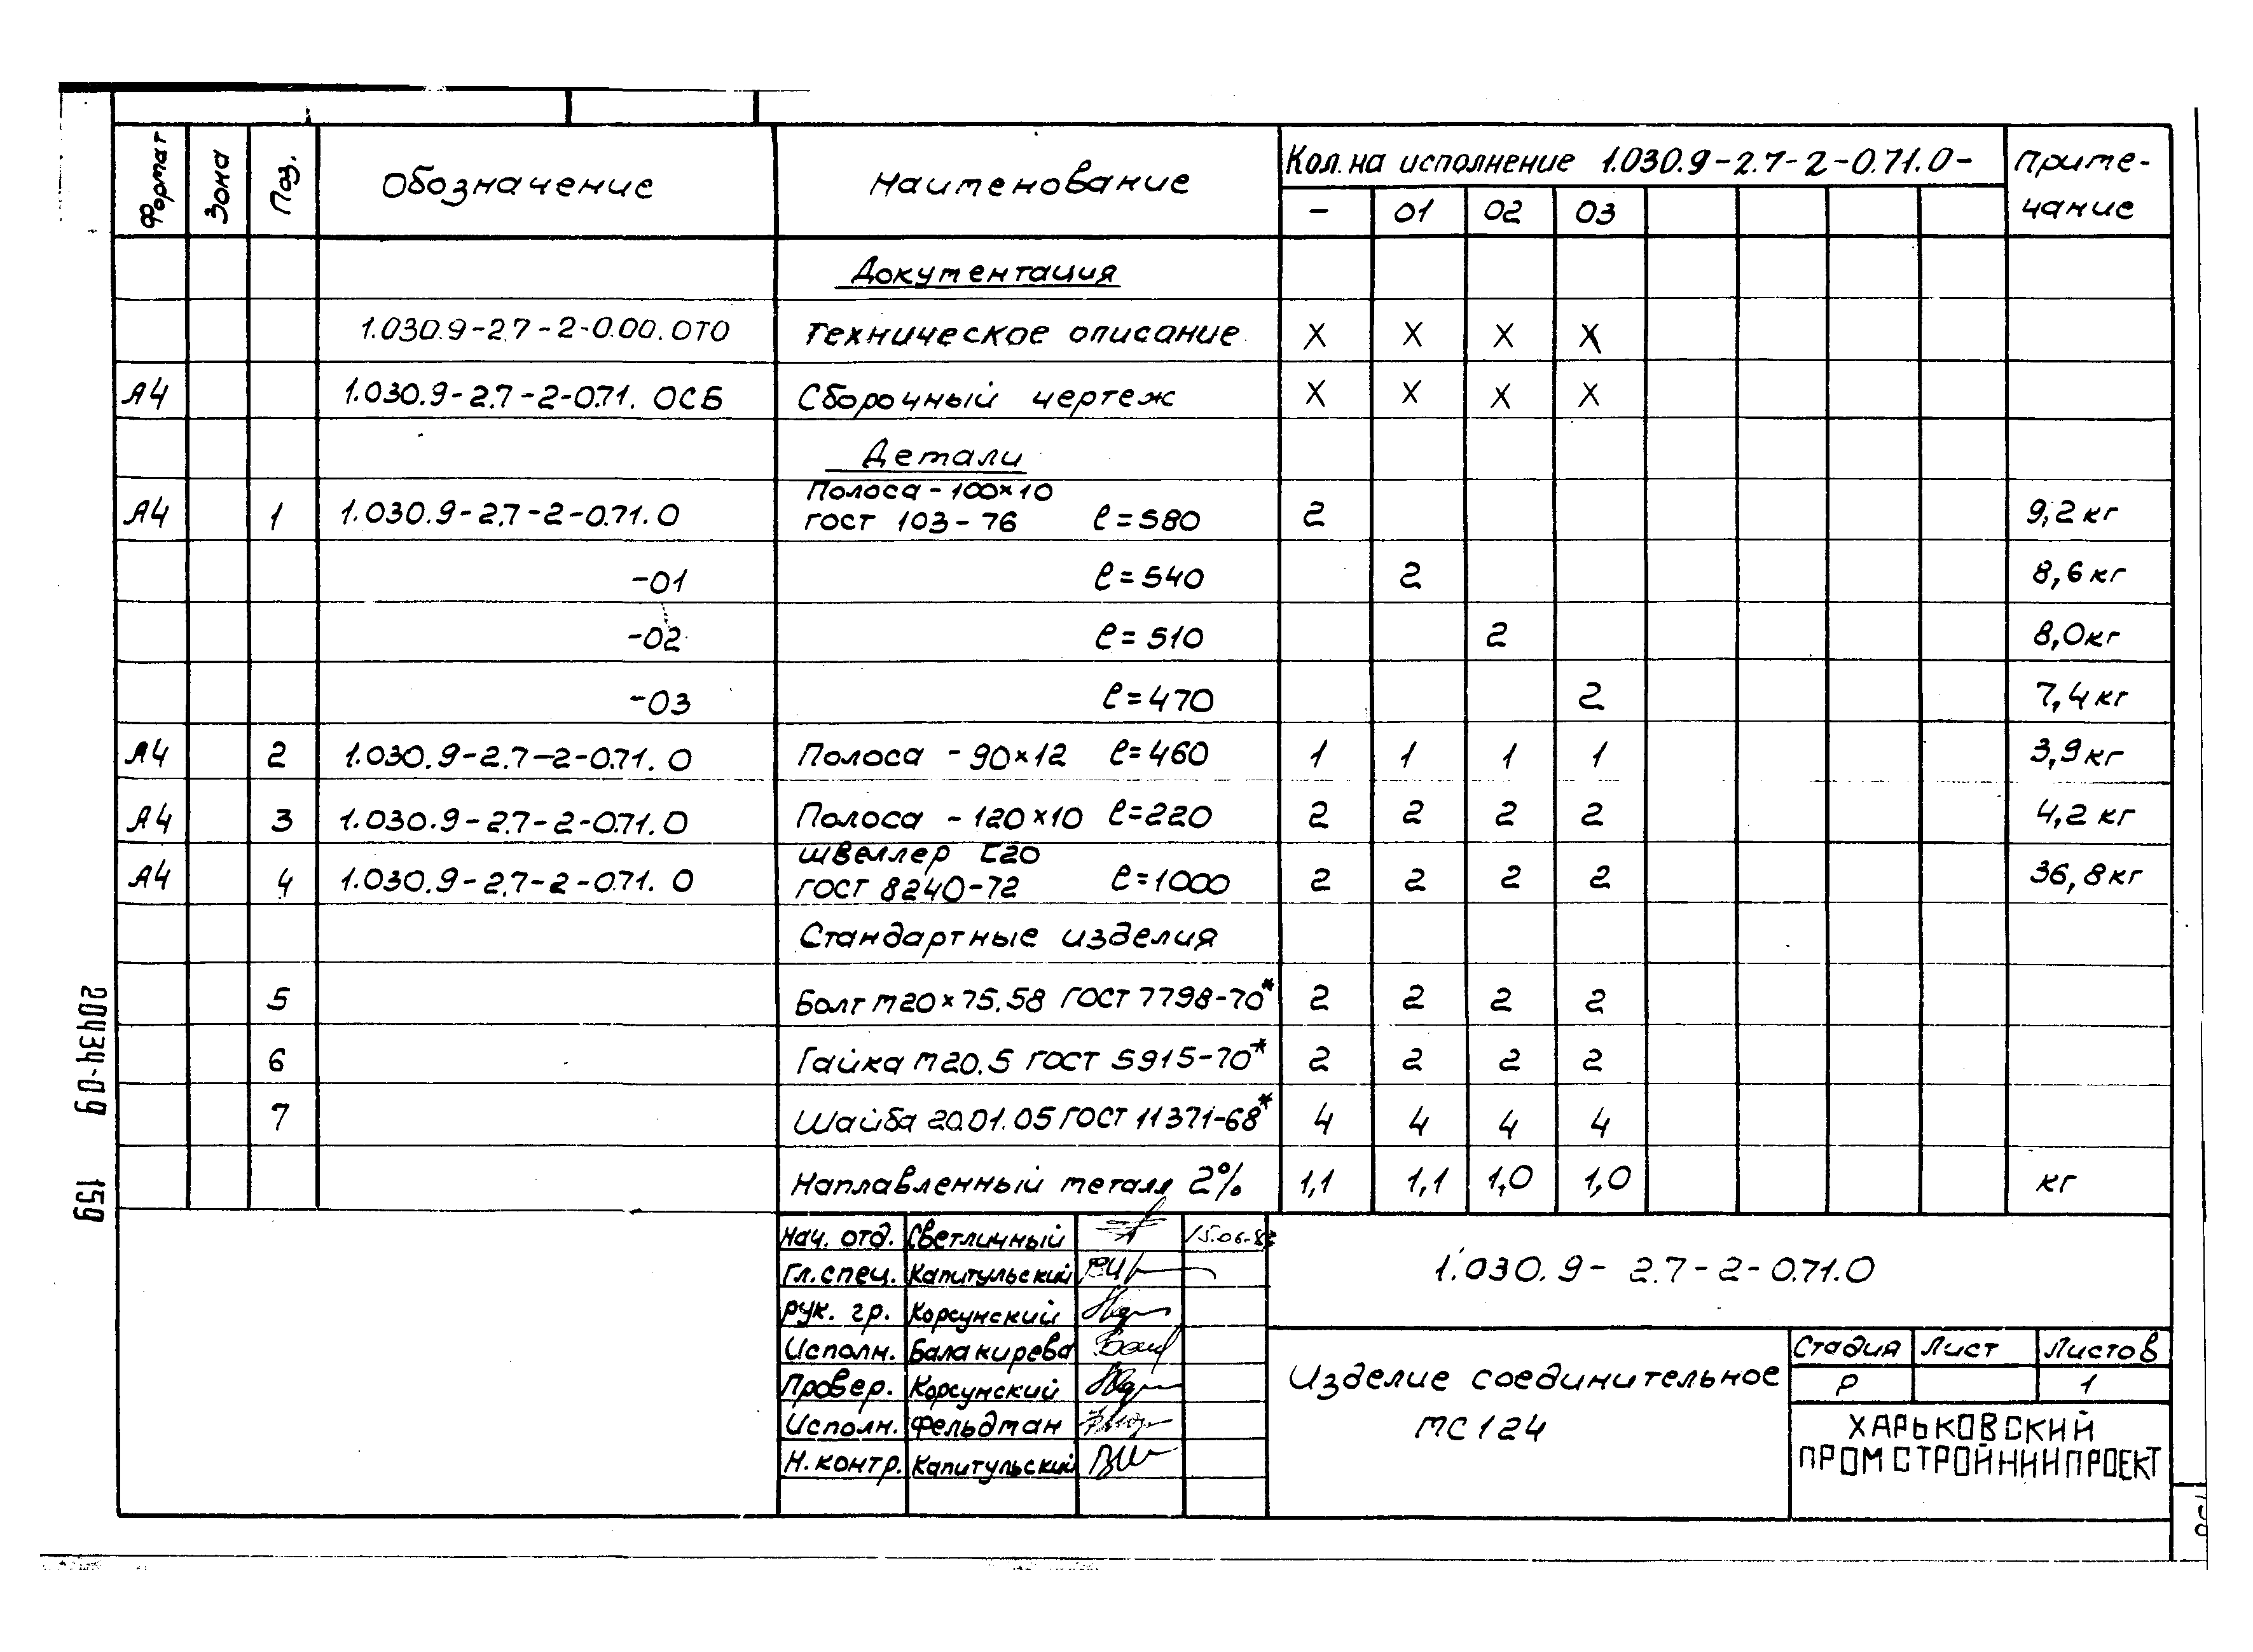 Формат Зона Поз. Обозначение Наименование Кол. на исполнение 1.030.9-2.7-2-0.71.0- Приме-
чание
- 01 02 03
Документация
1.030.9-2.7-2-0.00.0ТО Техническое описание X X X X
А4 1.030.9-2.7-2-0.71.0СБ Сборочный чертеж X X X X
Детали
Полоса -100×10
А4 1 1.030.9-2.7-2-0.71.0 ГОСТ 103-76 ℓ=580 2 9,2кг
-01 ℓ=540 2 8,6кг
-02 ℓ=510 2 8,0кг
-03 ℓ=470 2 7,4кг
А4 2 1.030.9-2.7-2-0.71.0 Полоса -90×12 ℓ=460 1 1 1 1 3,9кг
А4 3 1.030.9-2.7-2-0.71.0 Полоса -120×10 ℓ=220 2 2 2 2 4,2кг
Швеллер [20
А4 4 1.030.9-2.7-2-0.71.0 ГОСТ 8240-72 ℓ=1000 2 2 2 2 36,8кг
Стандартные изделия
5 Болт М20×75.58 ГОСТ 7798-70* 2 2 2 2
6 Гайка М20.5 ГОСТ 5915-70* 2 2 2 2
7 Шайба 20.01.05 ГОСТ 11371-68* 4 4 4 4
Наплавленный металл 2% 1,1 1,1 1,0 1,0 кг
20434-09 159
Нач. отд. Светличный
Гл. спец. Капитульский
Рук. гр. Корсунский
Исполн. Балакирева
Провер. Корсунский
Исполн. Фельдман
Н. контр. Капитульский
1.030.9-2.7-2-0.71.0
Изделие соединительное
МС124
Стадия Лист Листов
Р 1
ХАРЬКОВСКИЙ
ПРОМСТРОЙНИИПРОЕКТ